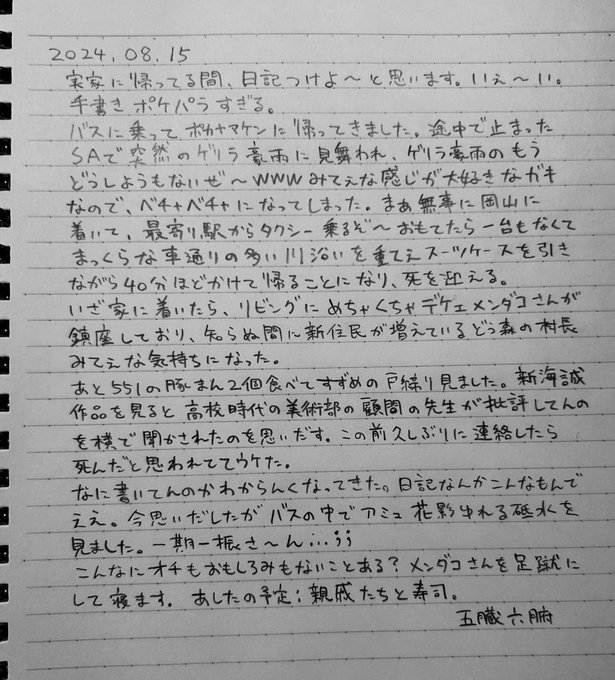 2024.08.15
実家に帰ってる間、日記つけよ〜と思います。いぇ〜い。
手書きポケパラすぎる。
バスに乗ってポカナマケンに帰ってきました。途中で止まった
SAで突然のゲリラ豪雨に見舞われ、ゲリラ豪雨のもう
どうしようもないぜ〜wwwみてぇな感じが大好きなガキ
なので、ベチャベチャになってしまった。まあ無事に岡山に
着いて、最寄り駅からタクシー乗るぞ〜おもてたら一台もなくて
まっくらな車通りの多い川沿いを重てえスーツケースを引き
ながら40分ほどかけて帰ることになり、死を迎える。
いざ家に着いたら、リビングにめちゃくちゃデケェメンダコさんが
鎮座しており、知らぬ間に新住民が増えているどう森の村長
みてぇな気持ちになった。
あと551の豚まん2個食べてすずめの戸締り見ました。新海誠
作品を見ると高校時代の美術部の顧問の先生が批評してんの
を横で聞かされたのを思いだす。この前久しぶりに連絡したら
死んだと思われててウケた。
なに書いてんのかわからんくなってきた。日記なんかこんなもんで
ええ。今思いだしたがバスの中でアミュ花影ゆれる砥水を
見ました。一期一振さ〜ん...;;
こんなにオチもおもしろみもないことある?メンダコさんを足蹴に
して寝ます。あしたの予定:親戚たちと寿司。
五臓六腑